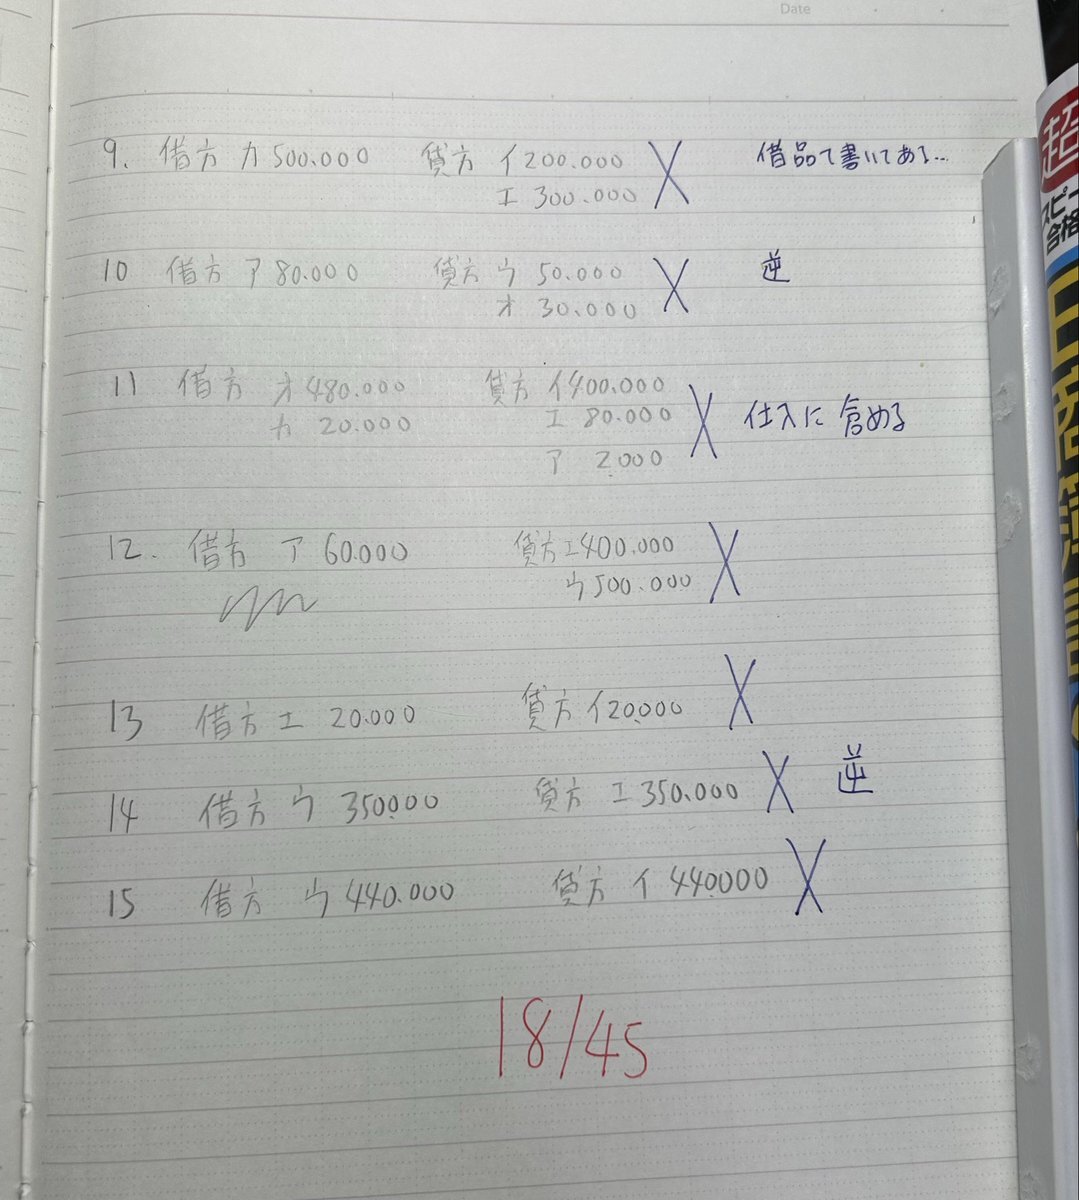 Date
9. 借方 カ 500.000 貸方 イ 200.000 X 備品で書いてある…
エ 300.000
10 借方 ア 80.000 貸方 ウ 50.000 X 逆
オ 30.000
11 借方 オ 480.000 貸方 イ 400.000 X 仕入に含める
カ 20.000 エ 80.000
ア 2.000
12. 借方 ア 60.000 貸方 エ 400.000 X
ウ 500.000
13 借方 エ 20.000 貸方 イ 20.000 X
14 借方 ウ 350.000 貸方 エ 350.000 X 逆
15 借方 ウ 440.000 貸方 イ 440.000 X
18/45
超
スピー
合格